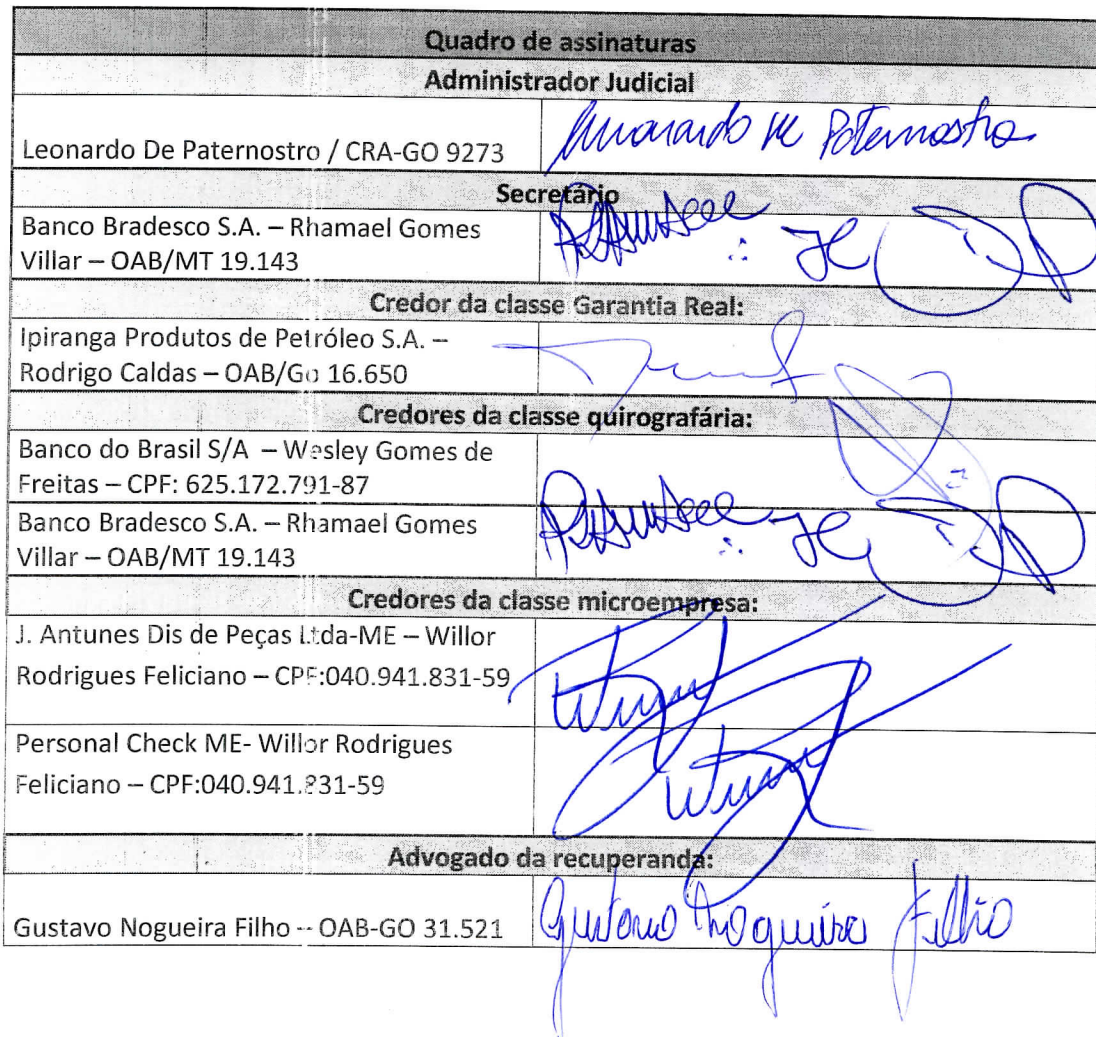 Quadro de assinaturas
Administrador Judicial
Leonardo De Paternostro / CRA-GO 9273
Leonardo de Paternostro
Secretário
Banco Bradesco S.A. – Rhamael Gomes
Villar – OAB/MT 19.143
Credor da classe Garantia Real:
Ipiranga Produtos de Petróleo S.A. –
Rodrigo Caldas – OAB/Go 16.650
Credores da classe quirografária:
Banco do Brasil S/A – Wesley Gomes de
Freitas – CPF: 625.172.791-87
Banco Bradesco S.A. – Rhamael Gomes
Villar – OAB/MT 19.143
Credores da classe microempresa:
J. Antunes Dis de Peças Ltda-ME – Willor
Rodrigues Feliciano – CPF:040.941.831-59
Personal Check ME- Willor Rodrigues
Feliciano – CPF:040.941.831-59
Advogado da recuperanda:
Gustavo Nogueira Filho -- OAB-GO 31.521
Gustavo Nogueira Filho